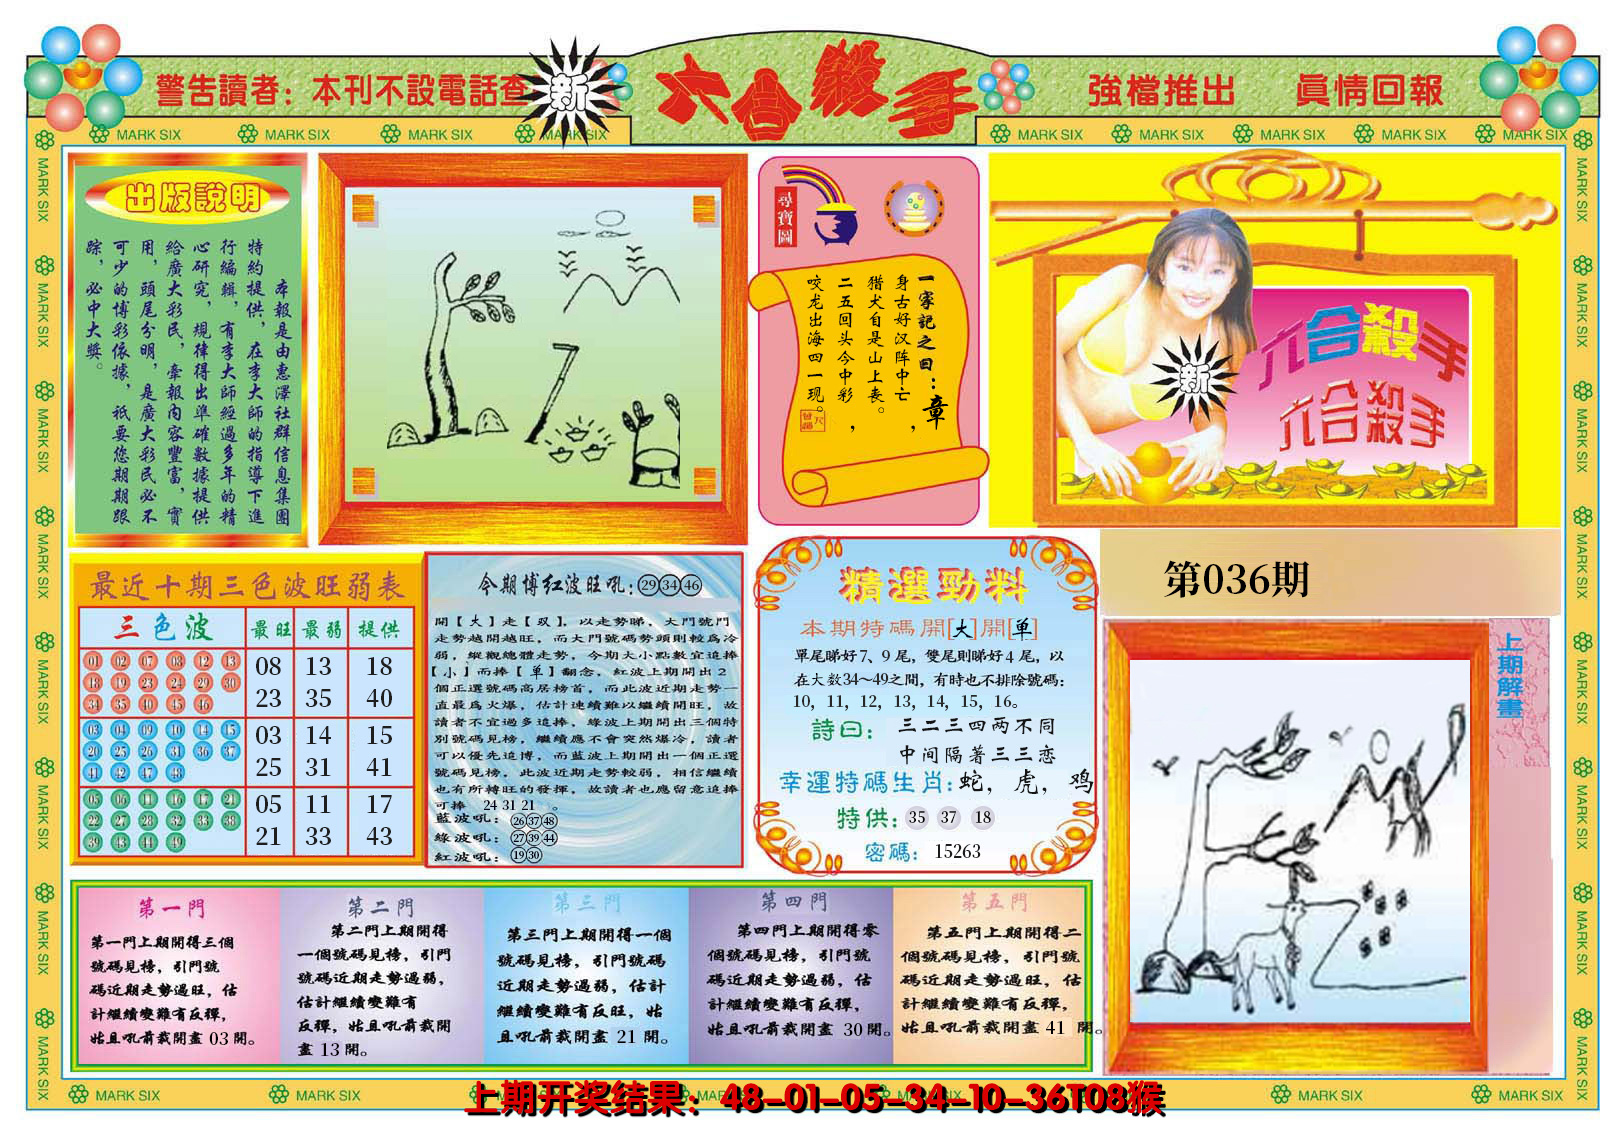 警告讀者：本刊不設電話查
新
六合殺手
強檔推出 真情回報
MARK SIX
出版說明
本報是由惠澤社群信息集團
特約提供，在李大師的指導下進
行編輯，有李大師經過多年的精
心研究，規律得出準確數據提供
給廣大彩民，本報內容豐富，實
用，頭尾分明，是廣大彩民必不
可少的博彩依據，祇要您期期跟
踪，必中大獎。
尋寶圖
一家記之曰：章
身古好汉阵中亡，
猎犬自是山上丧。
二五回头今中彩，
咬龙出海四一现。
六合殺手
新
六合殺手
第036期
最近十期三色波旺弱表
三色波 最旺 最弱 提供
01 02 07 08 12 13
18 19 23 24 29 30
34 35 40 45 46
08 13 18
23 35 40
03 04 09 10 14 15
20 25 26 31 36 37
41 42 47 48
03 14 15
25 31 41
05 06 11 16 17 21
22 27 28 32 33 38
39 43 44 49
05 11 17
21 33 43
今期博红波旺吼：29 34 46
開【大】走【双】，以走勢睇，大門號門
走勢越開越旺，而大門號碼勢頭則較爲冷
弱，縱觀總體走勢，今期大小點數宜追捧
【小】而捧【单】翻念，紅波上期開出2
個正選號碼高居榜首，而此波近期走勢一
直最爲火爆，估計連續難以繼續開旺，故
讀者不宜過多追捧，綠波上期開出三個特
別號碼見榜，繼續應不會突然爆冷，讀者
可以優先追博，而藍波上期開出一個正選
號碼見榜，此波近期走勢較弱，相信繼續
也有所轉旺的發揮，故讀者也應留意追捧
可捧 24 31 21 。
藍波吼：26 37 48
綠波吼：27 39 44
紅波吼：19 30
精選勁料
本期特碼開[大]開[单]
單尾睇好7、9尾，雙尾則睇好4尾，以
在大数34～49之間，有時也不排除號碼：
10, 11, 12, 13, 14, 15, 16。
詩曰：三二三四两不同
中间隔著三三恋
幸運特碼生肖：蛇， 虎， 鸡
特供：35 37 18
密碼：15263
上期解畫
第一門
第一門上期開得三個
號碼見榜，引門號
碼近期走勢過旺，估
計繼續變難有反彈，
姑且吼前裁開盡 03 開。
第二門
第二門上期開得
一個號碼見榜，引門
號碼近期走勢過弱，
估計繼續變難有
反彈，姑且吼前裁開
盡 13 開。
第三門
第三門上期開得一個
號碼見榜，引門號碼
近期走勢過弱，估計
繼續變難有反旺，姑
且吼前裁開盡 21 開。
第四門
第四門上期開得零
個號碼見榜，引門號
碼近期走勢過弱，估
計繼續變難有反彈，
姑且吼前裁開盡 30 開。
第五門
第五門上期開得二
個號碼見榜，引門號
碼近期走勢過旺，估
計繼續變難有反彈，
姑且吼前裁開盡 41 開。
上期开奖结果：48-01-05-34-10-36T08猴